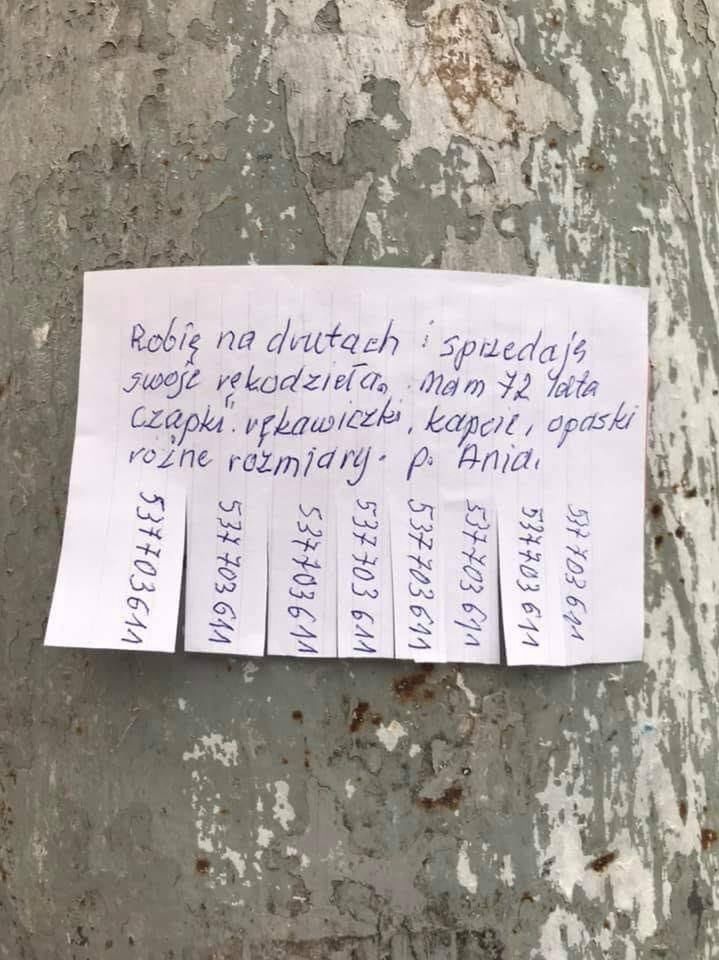 Robię na drutach i sprzedaję
swoje rękodzieła. Mam 72 lata
czapki. rękawiczki, kapcie, opaski
różne rozmiary. p. Ania.
537703611
537703611
537703611
537703611
537703611
537703611
537703611
537703611